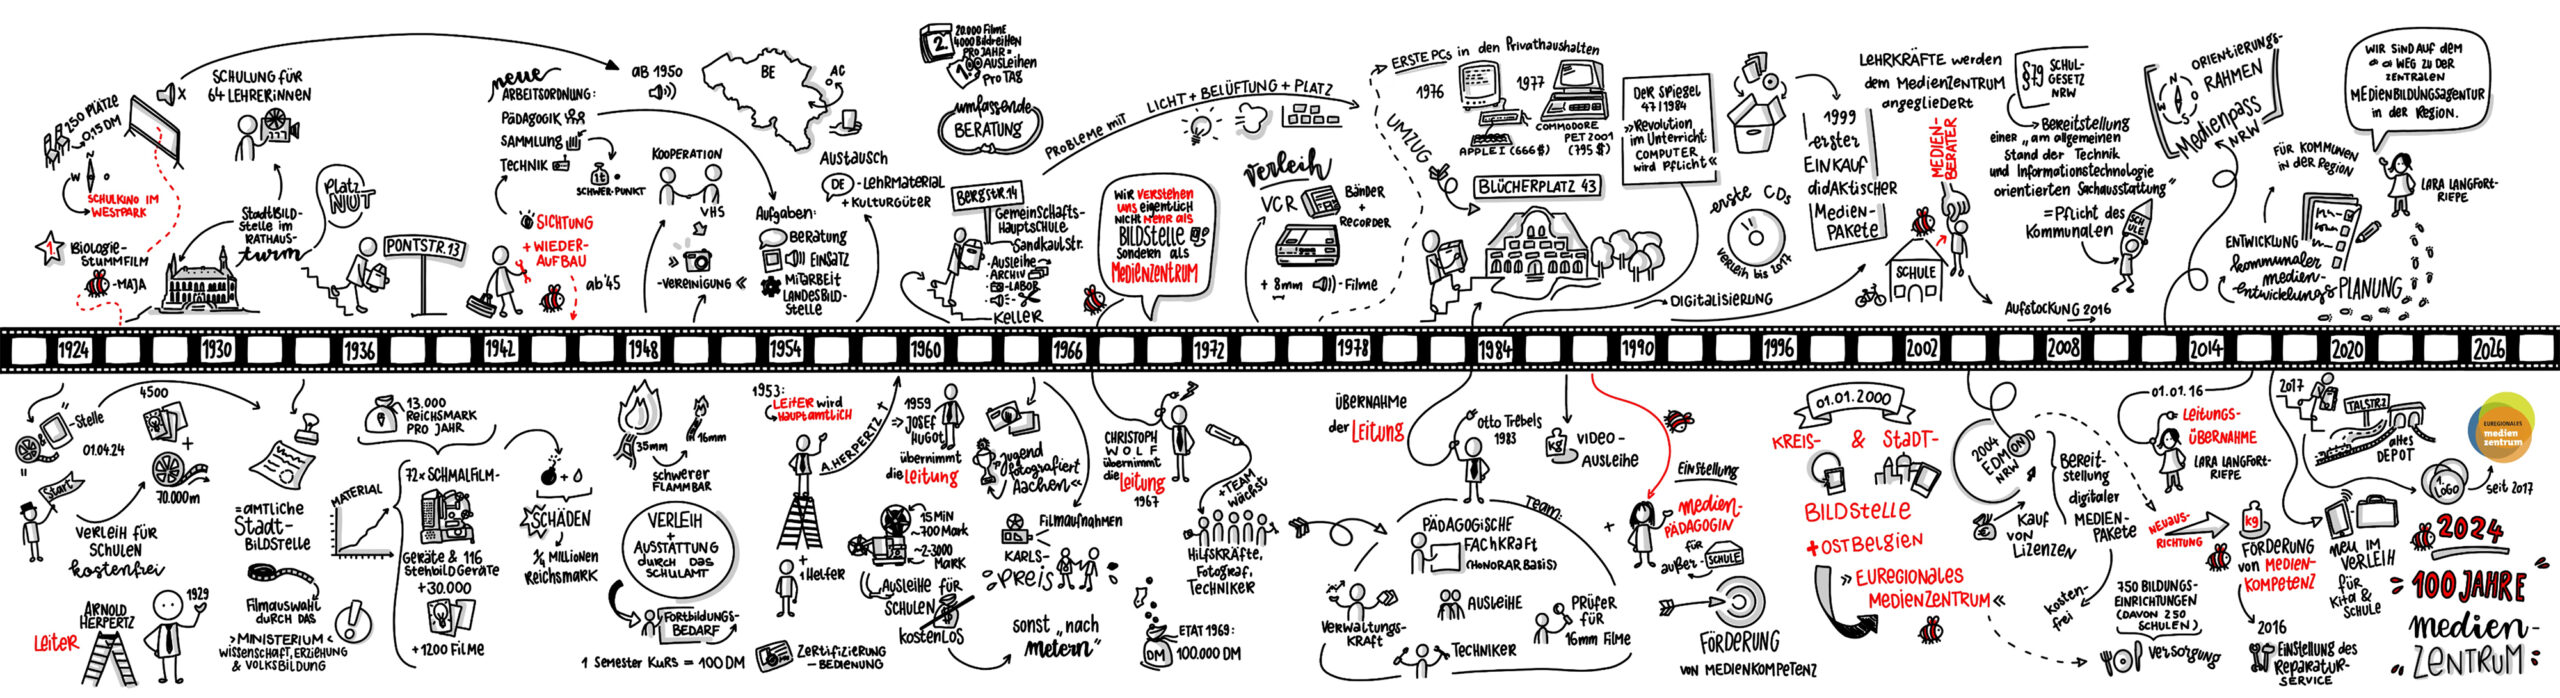 250 PLÄTZE
0,15 DM
N
W
O
S
SCHULKINO IM
WESTPARK
1.
BIOLOGIE-
STUMMFILM
-MAJA
X
SCHULUNG FÜR
64 LEHRERINNEN
STADTBILD-
STELLE IM
RATHAUS-
turm
Platz
NUT
PONTSTR. 13
neue
ARBEITSORDNUNG:
PÄDAGOGIK
SAMMLUNG
TECHNIK
1t
SCHWER-PUNKT
SICHTUNG
+ WIEDER-
AUFBAU
ab '45
AB 1950
KOOPERATION
VHS
»
-VEREINIGUNG «
BE
AC
Aufgaben:
BERATUNG
EINSATZ
MITARBEIT
LANDESBILD-
STELLE
Austausch
DE - LEHRMATERIAL
+ KULTURGÜTER
2.
20.000 Filme
4000 Bildreihen
PRO JAHR =
100 AUSLEIHEN
PRO TAG
umfassende
BERATUNG
PROBLEME MIT LICHT + BELÜFTUNG + PLATZ
BERGSTR. 14
GEMEINSCHAFTS-
HAUPTSCHULE
SANDKAULSTR.
- AUSLEIHE
- ARCHIV
- LABOR
KELLER
WIR VERSTEHEN
UNS eigentlich
NICHT MEHR ALS
BILDSTELLE
SONDERN ALS
MEDIENZENTRUM
Verleih
VCR
BÄNDER
+
RECORDER
+ 8mm
- Filme
UMZUG
ERSTE PCs in den Privathaushalten
1976
1977
APPLE I (666 $)
COMMODORE
PET 2001
(795 $)
BLÜCHERPLATZ 43
DER SPIEGEL
47 | 1984
»Revolution
im Unterricht
COMPUTER
wird Pflicht«
DIGITALISIERUNG
erste CDs
VERLEIH BIS 2017
1999
erster
EINKAUF
didAktischer
Medien-
PAKETE
LEHRKRÄFTE werden
dem MEDIENZENTRUM
angegliedert
MEDIEN-
BERATER
SCHULE
AUFSTOCKUNG 2016
§79 SCHUL-
GESETZ
NRW
Bereitstellung
einer „am allgemeinen
Stand der Technik
und Informationstechnologie
orientierten Sachausstattung“
= Pflicht des
Kommunalen
SCHULE
N
W
O
S
ORIENTIERUNGS-
RAHMEN
Medienpass
NRW
FÜR KOMMUNEN
in der REGION
ENTWICKLUNG
kommunaler
medien-
entwicklungsPLANUNG
WIR SIND AUF dem
WEG ZU DER
ZENTRALEN
MEDIENBILDUNGSAGENTUR
in der REGION.
LARA LANGFORT-
RIEPE
1924 1930 1936 1942 1948 1954 1960 1966 1972 1978 1984 1990 1996 2002 2008 2014 2020 2026
„
-Stelle
“
01.04.24
Start
4500
+
70.000m
VERLEIH FÜR
SCHULEN
kostenfrei
Leiter
ARNOLD
HERPERTZ
1929
=AMTLICHE
Stadt-
BILDSTELLE
FILMAUSWAHL
DURCH DAS
>MINISTERIUM<
WISSENSCHAFT, ERZIEHUNG
& VOLKSBILDUNG
13.000
REICHSMARK
PRO JAHR
MATERIAL
72x SCHMALFILM-
GERÄTE & 116
STEHBILDGERÄTE
+30.000
+1200 FILME
+
SCHÄDEN
¼ MILLIONEN
REICHSMARK
35mm
16mm
schwerer
FLAMMBAR
VERLEIH
+
AUSSTATTUNG
DURCH DAS
SCHULAMT
FORTBILDUNGS-
BEDARF
1 Semester Kurs = 100 DM
1953:
LEITER wird
HAUPTAMTLICH
A. HERPERTZ †
+
1 Helfer
Zertifizierung
- BEDIENUNG
1959
=> JOSEF
HUGOT
übernimmt
die Leitung
15 MIN
~700 MARK
~2-3000
MARK
AUSLEIHE FÜR
SCHULEN
kostenlos
„Jugend
fotografiert
Aachen“
Filmaufnahmen
KARLS-
PREIS
sonst „nach
Metern“
CHRISTOPH
WOLF
übernimmt
die Leitung
1967
+ TEAM
wächst
HILFSKRÄFTE,
FOTOGRAF,
TECHNIKER
DM
ETAT 1969:
100.000 DM
ÜBERNAHME
der Leitung
Otto Trebels
1983
PÄDAGOGISCHE
FACHKRAFT
(HONORARBASIS)
Team:
AUSLEIHE
VERWALTUNGS-
KRAFT
PRÜFER
FÜR
16mm Filme
TECHNIKER
kg
VIDEO-
Ausleihe
+
Einstellung
medien-
PÄDAGOGIN
für
außer- SCHULE
FÖRDERUNG
VON MEDIENKOMPETENZ
01.01.2000
KREIS- & STADT-
BILDSTELLE
+ OSTBELGIEN
» EUREGIONALES
MEDIENZENTRUM «
2004
EDMOND
NRW
KAUF
VON
LIZENZEN
Bereit-
stellung
digitaler
MEDIEN-
PAKETE
kosten-
frei
01.01.16
Leitungs-
ÜBERNAHME
LARA LANGFORT-
RIEPE
NEUAUS-
RICHTUNG
750 BILDUNGS-
EINRICHTUNGEN
(DAVON 250
SCHULEN)
Versorgung
kg
FÖRDERUNG
von MEDIEN-
KOMPETENZ
2016
EINSTELLUNG DES
REPARATUR-
SERVICE
2017
TALSTR 2
altes
DEPOT
NEU IM
VERLEIH
für
Kita &
SCHULE
LOGO
seit 2017
EUREGIONALES
medien
zentrum
2024
100 JAHRE
medien-
ZENTRUM